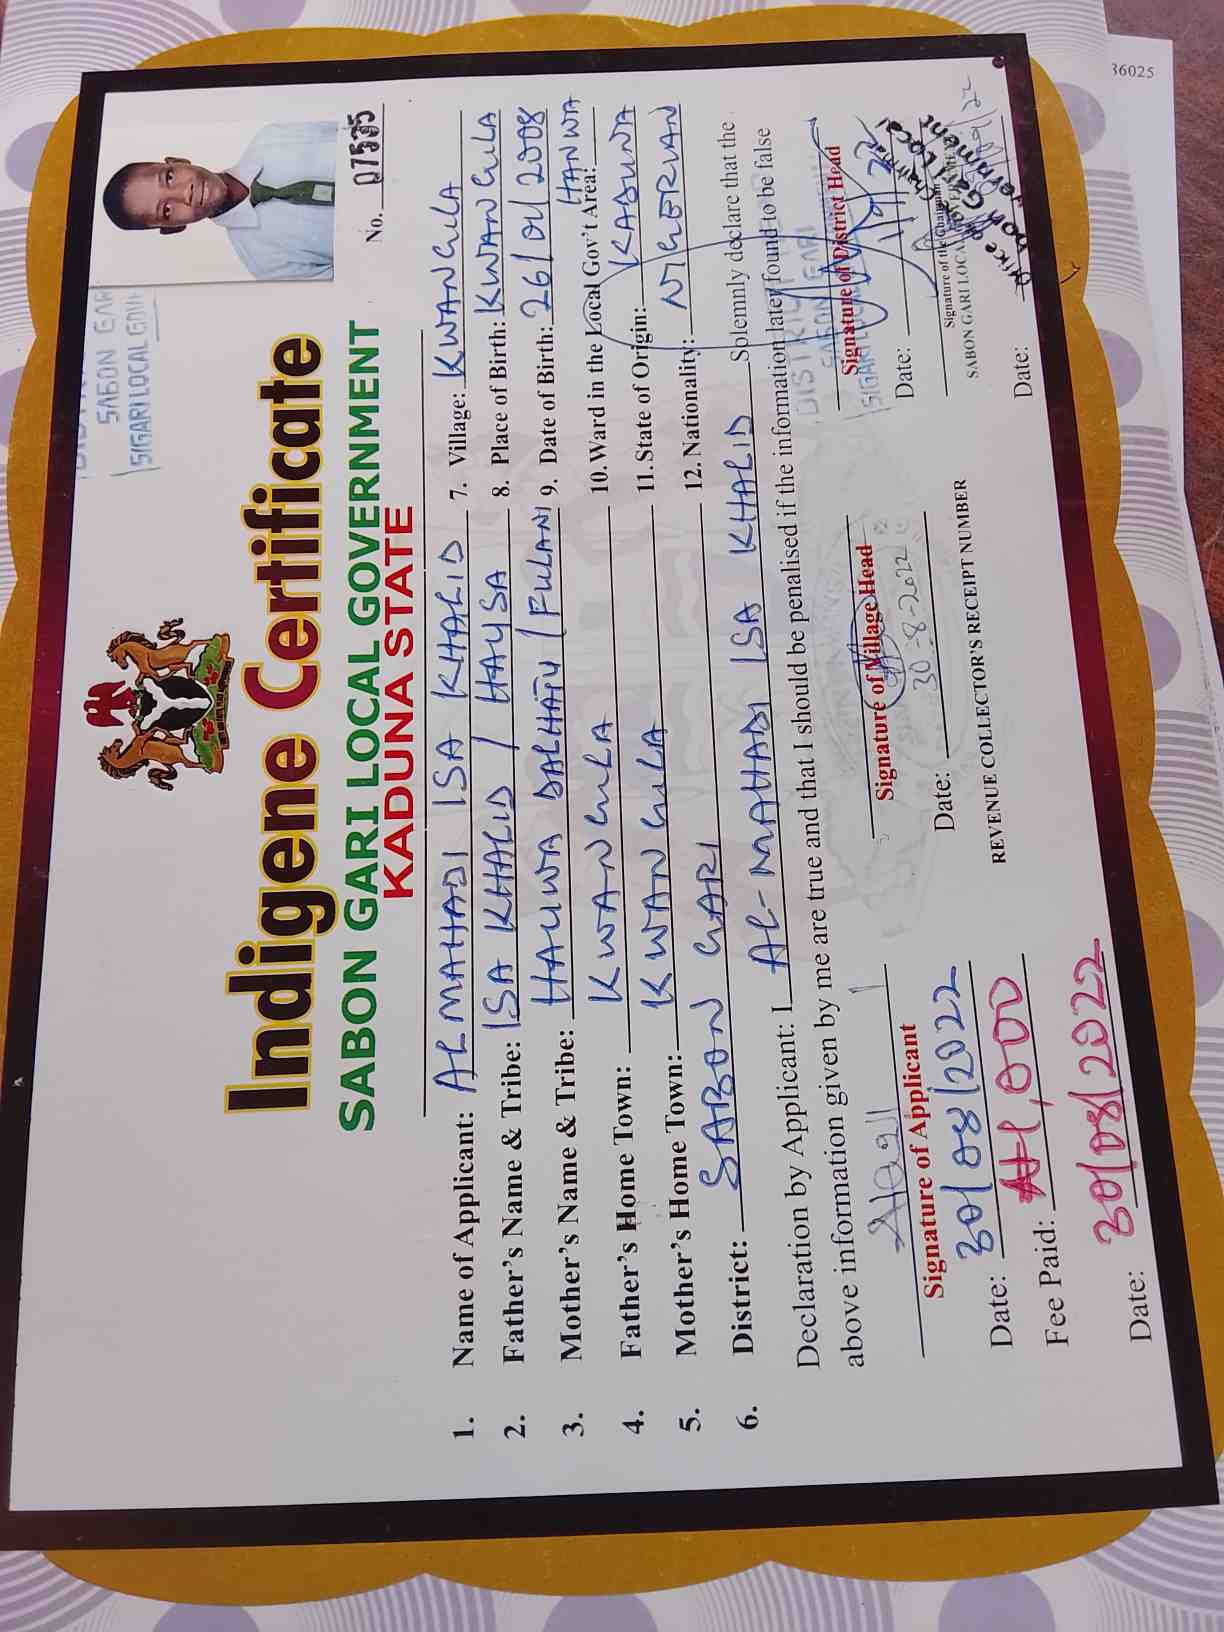 36025
SABON GAR
SIGARI LOCAL GOV
No. 07535
Indigene Certificate
SABON GARI LOCAL GOVERNMENT
KADUNA STATE
1. Name of Applicant: ALMAHADI ISA KHALID
2. Father's Name & Tribe: ISA KHALID / HAUSA
3. Mother's Name & Tribe: HAUWA DALHATU / FULANI
4. Father's Home Town: KWANGILA
5. Mother's Home Town: KWANGILA
6. District: SABON GARI
7. Village: KWANGILA
8. Place of Birth: KWANGILA
9. Date of Birth: 26/01/2008
10. Ward in the Local Gov't Area: HANWA
11. State of Origin: KADUNA
12. Nationality: NIGERIAN
Declaration by Applicant: I AL-MAHADI ISA KHALID Solemnly declare that the
above information given by me are true and that I should be penalised if the information later found to be false
Signature of Applicant
Date: 30/08/2022
Fee Paid: ₦1,000
Date: 30/08/2022
Signature of Village Head
Date: 30-8-2022
REVENUE COLLECTOR'S RECEIPT NUMBER
DISTRICT
SABON GARI
SIGARI LOCAL
Signature of District Head
Date:
Signature of the Chairman
SABON GARI LOCAL
Office of the Chairman
Sabon Gari Local
Government
Date: